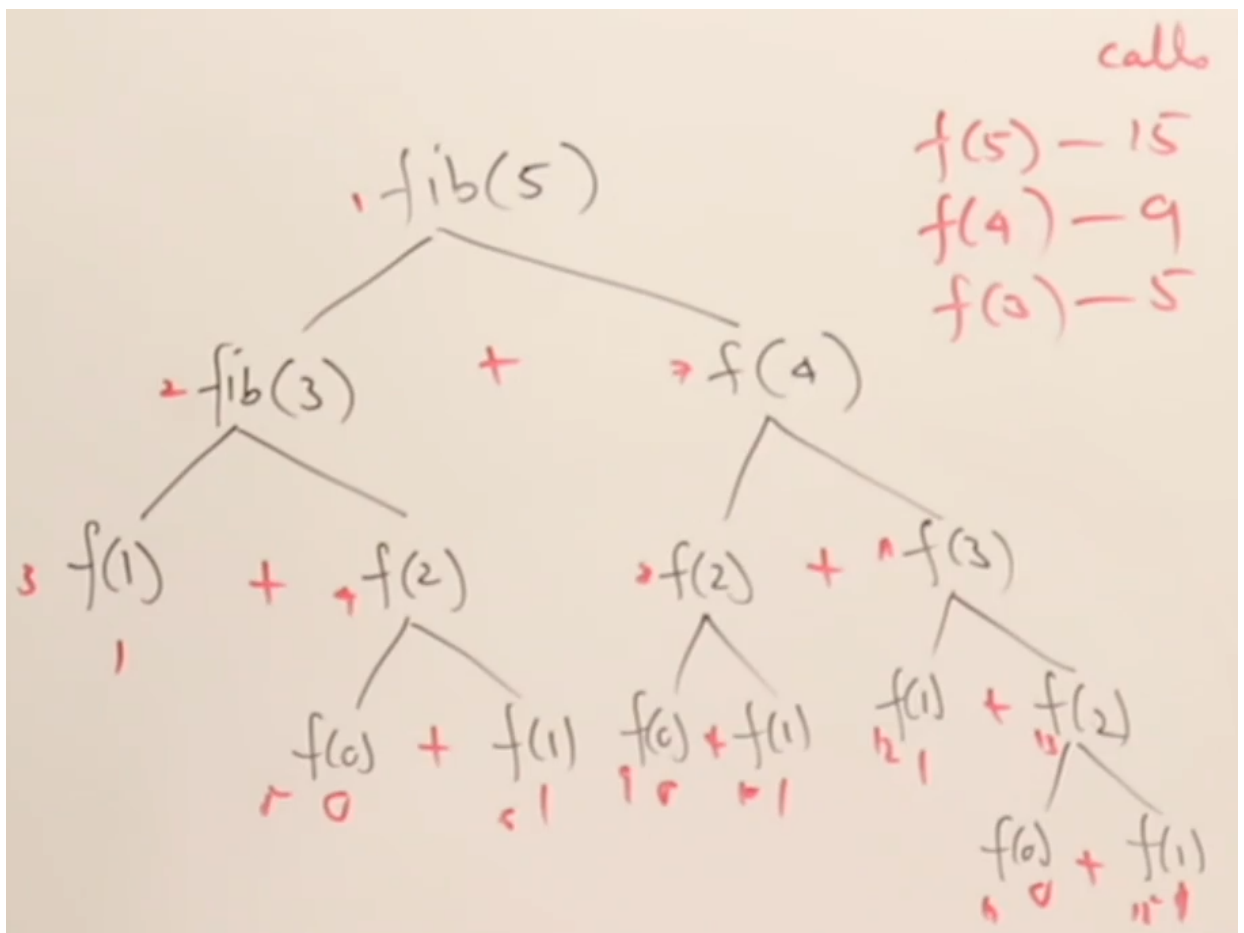 calls
f(5) — 15
1 fib(5)
f(4) — 9
f(3) — 5
2 fib(3) + 7 f(4)
3 f(1) + 4 f(2) 8 f(2) + 11 f(3)
1
f(0) + f(1) f(0) + f(1) f(1) + f(2)
5 0 6 1 9 0 10 1 12 1 13
f(0) + f(1)
0 15 1